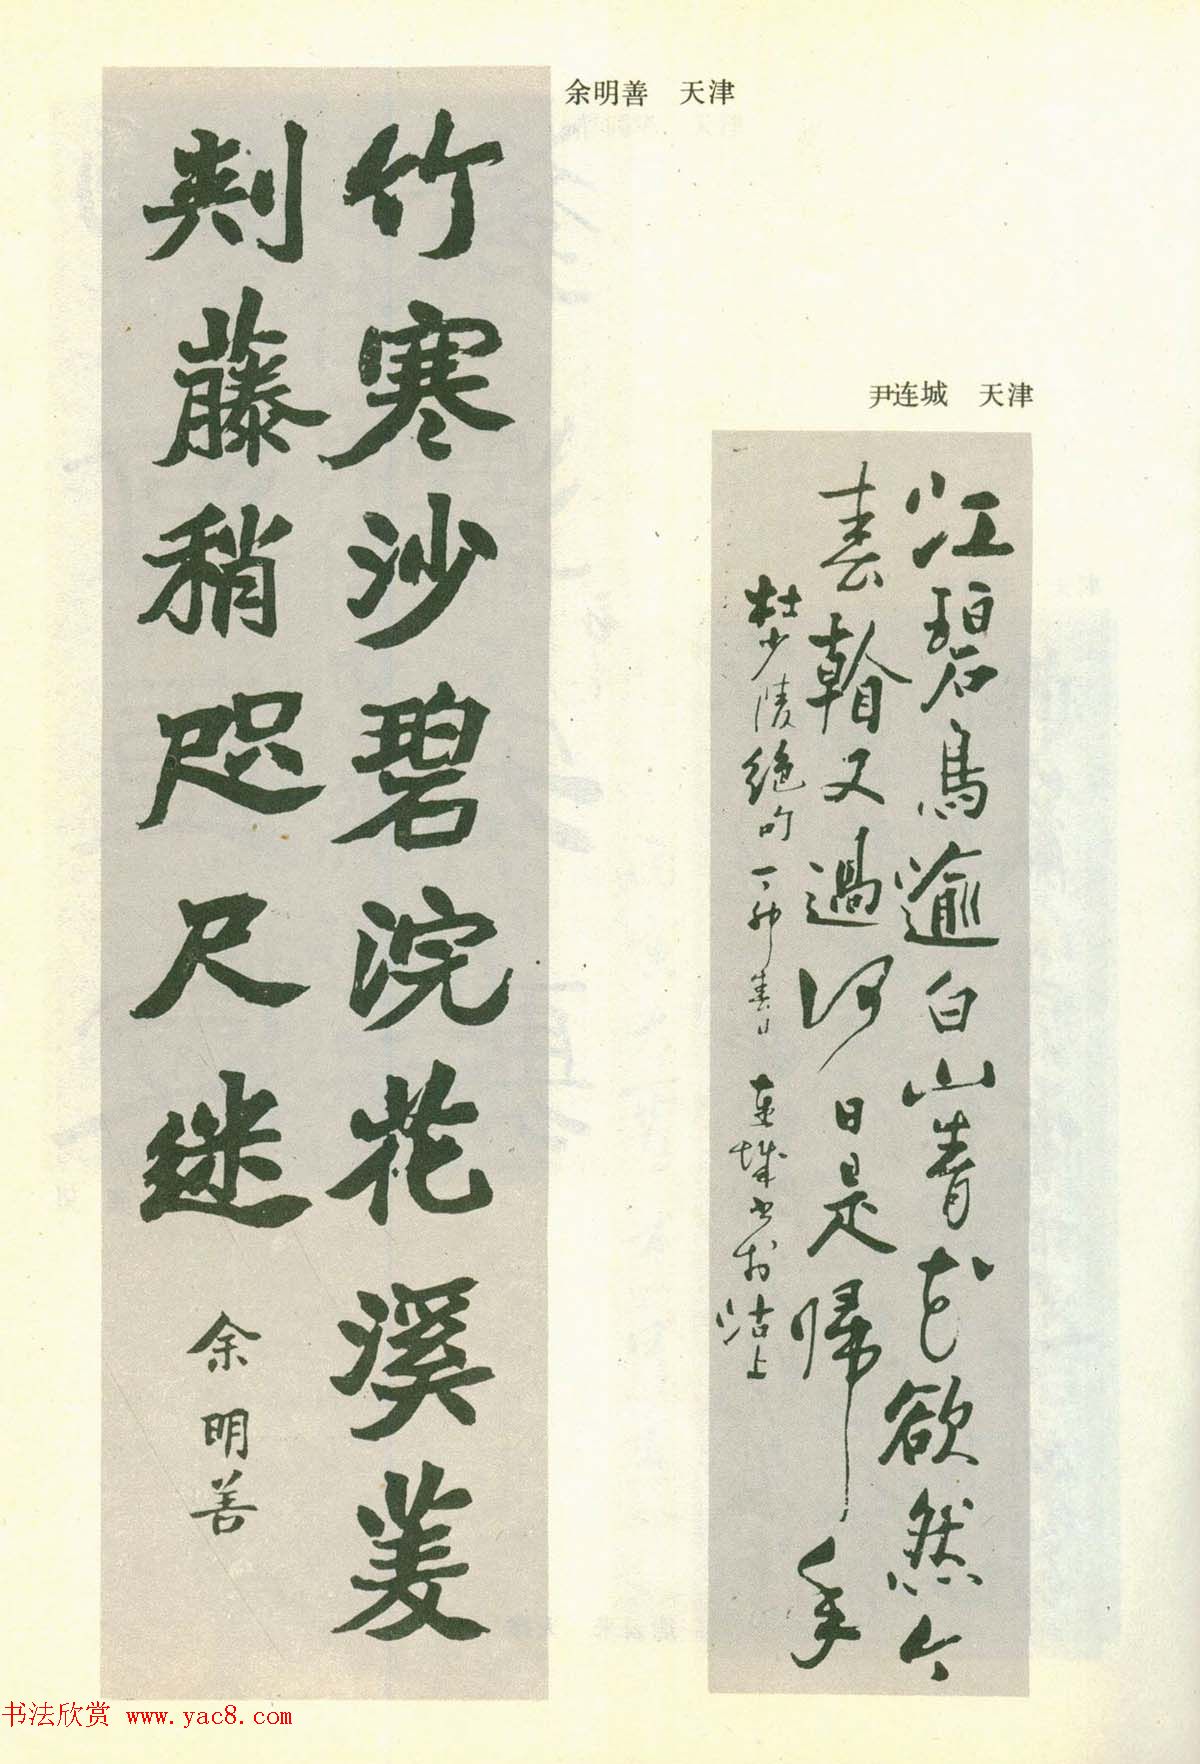 余明善 天津
竹寒沙碧浣花溪菱
刾藤稍咫尺迷
余明善
尹连城 天津
江碧鳥逾白山青花欲然今
春看又過何日是歸年
杜少陵絶句丁卯春日 連城書於沽上
书法欣赏 www.yac8.com